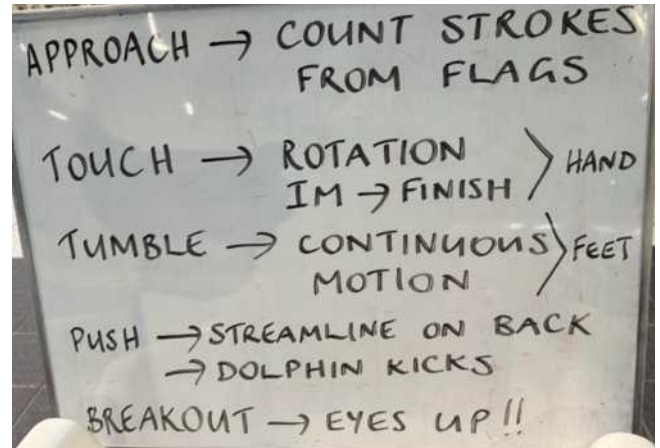 APPROACH → COUNT STROKES
FROM FLAGS
TOUCH → ROTATION
IM → FINISH > HAND
TUMBLE → CONTINUOUS
MOTION > FEET
PUSH → STREAMLINE ON BACK
→ DOLPHIN KICKS
BREAKOUT → EYES UP!!